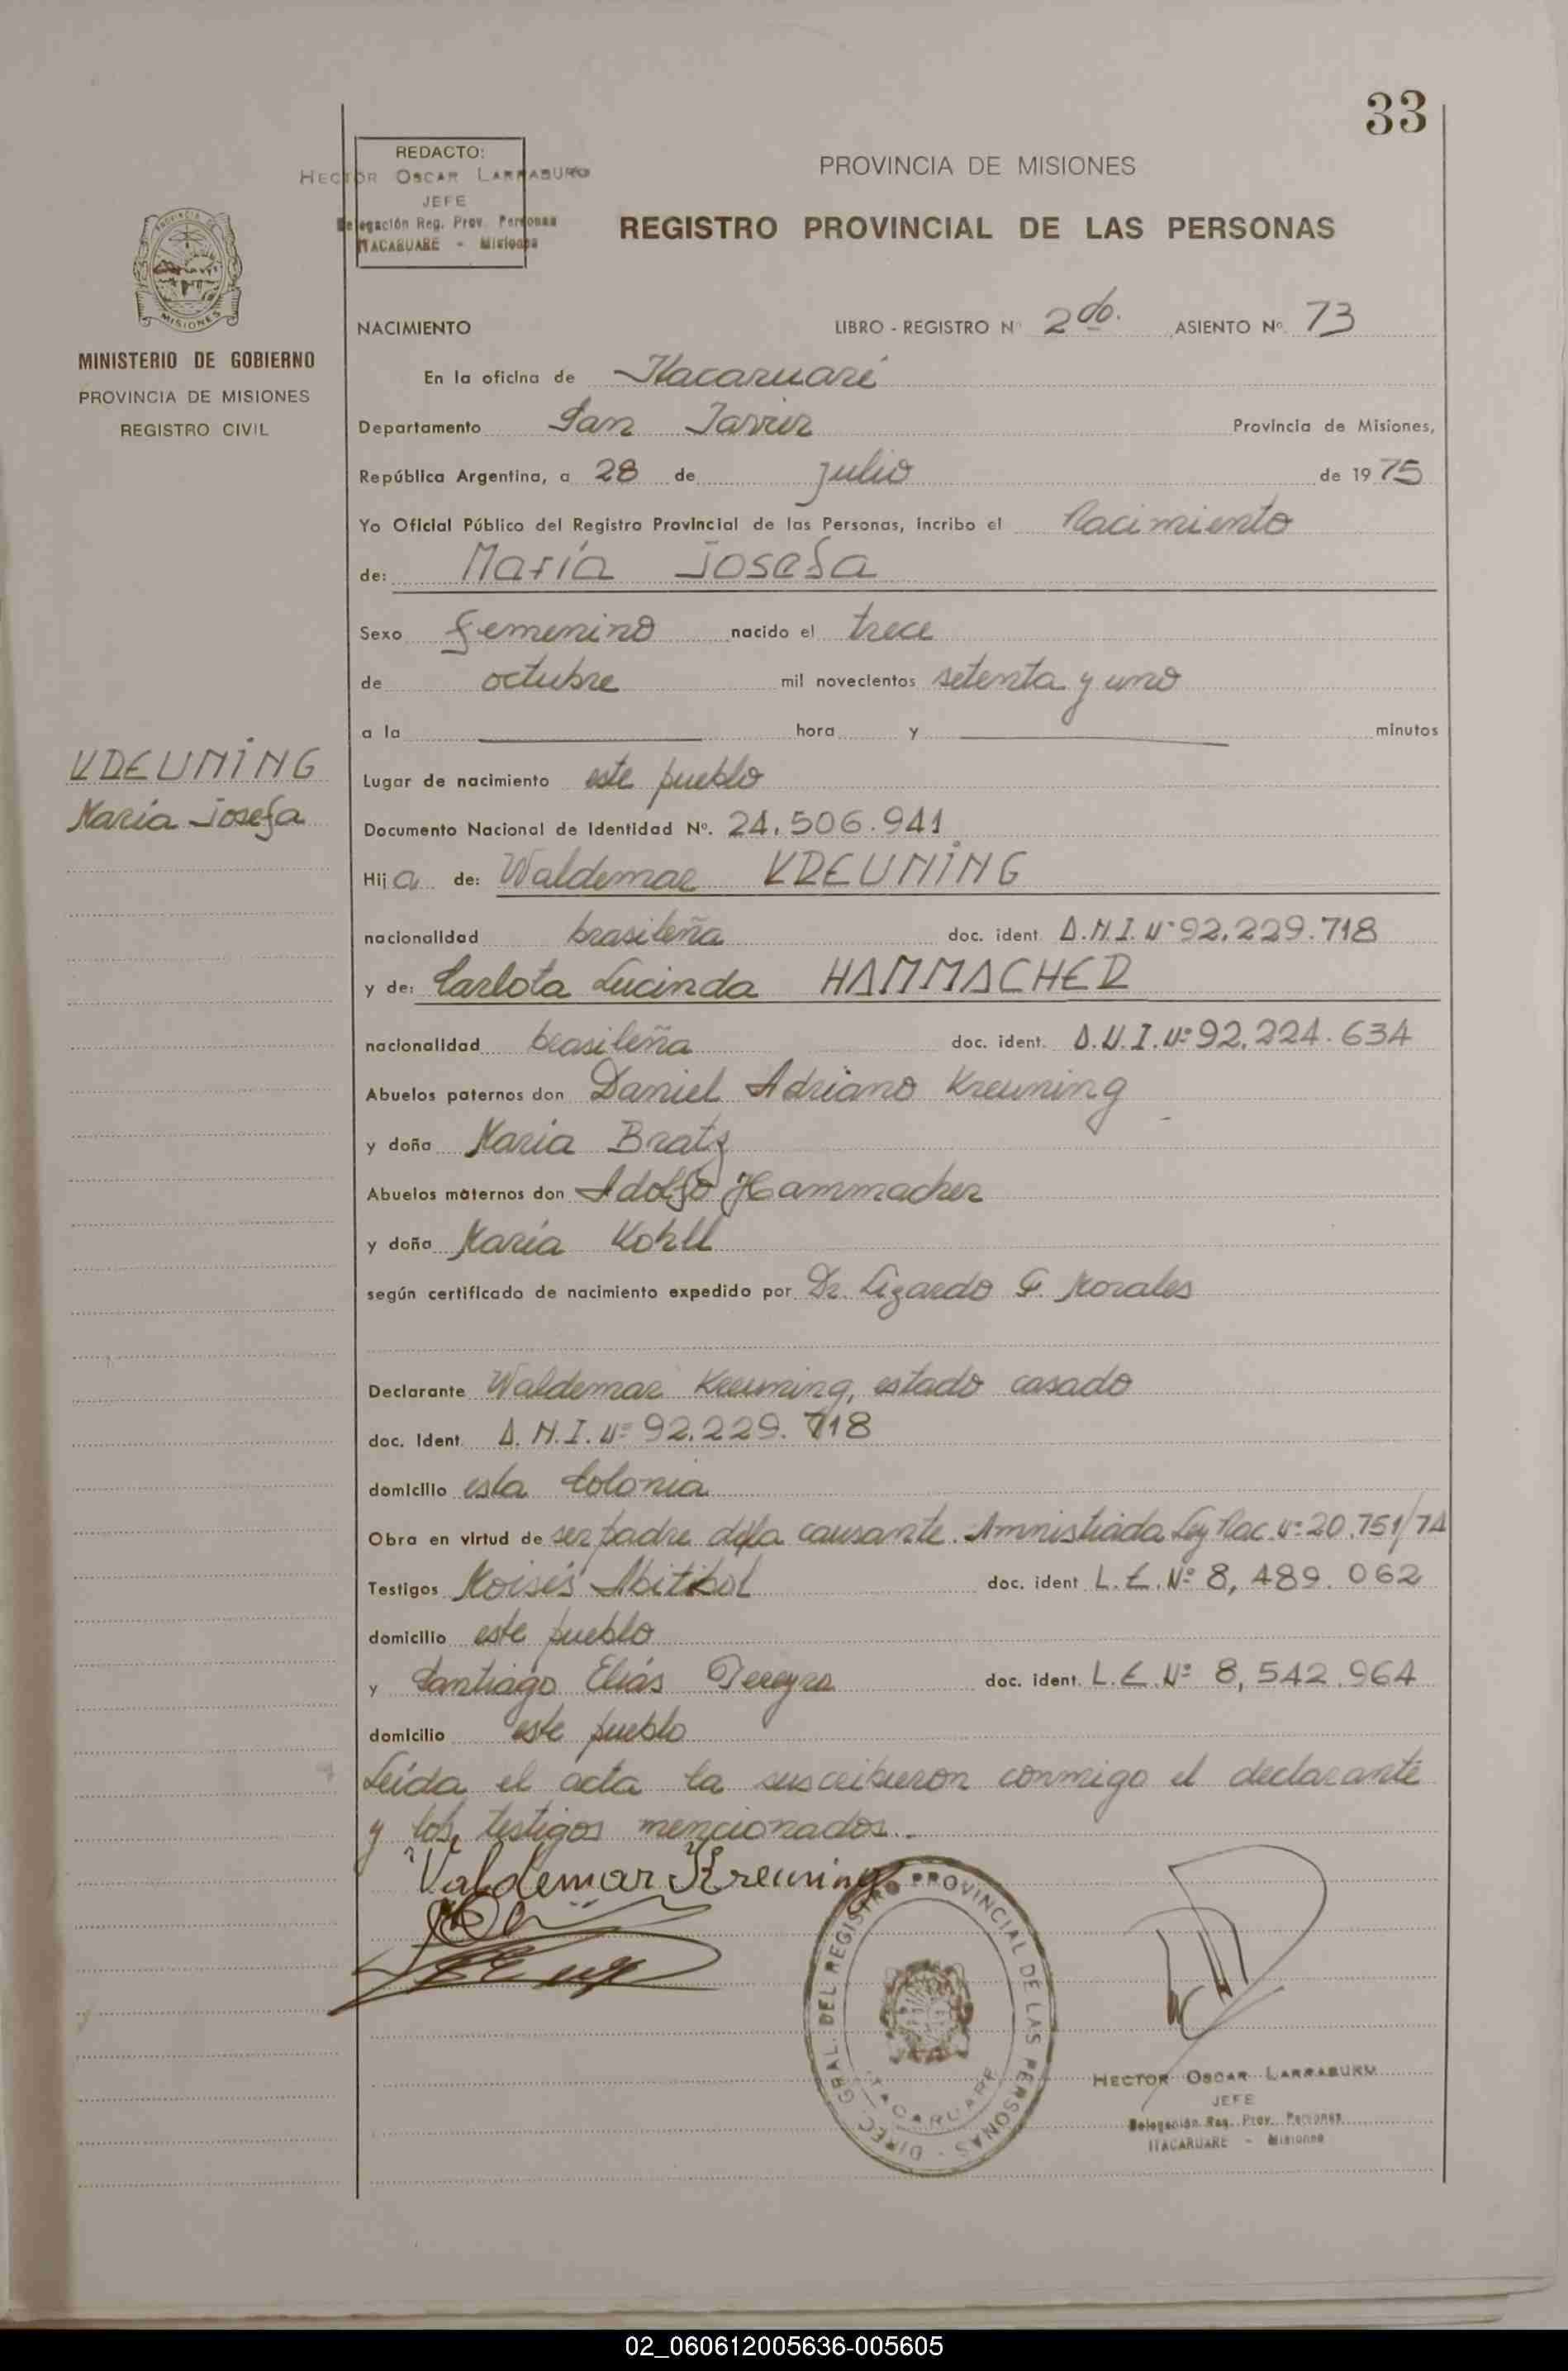 33
REDACTO:
HECTOR OSCAR LARRABURU
JEFE
Delegación Reg. Prov. Personas
ITACARUARE - Misiones
PROVINCIA DE MISIONES
REGISTRO PROVINCIAL DE LAS PERSONAS
MISIONES
MINISTERIO DE GOBIERNO
PROVINCIA DE MISIONES
REGISTRO CIVIL
NACIMIENTO LIBRO - REGISTRO Nº 2do. ASIENTO Nº 73
En la oficina de Itacaruaré
Departamento San Javier Provincia de Misiones,
República Argentina, a 28 de julio de 1975
Yo Oficial Público del Registro Provincial de las Personas, incribo el Nacimiento
de: María Josefa
Sexo femenino nacido el trece
de octubre mil novecientos setenta y uno
a la hora y minutos
KREUNING
María Josefa
Lugar de nacimiento este pueblo
Documento Nacional de Identidad Nº. 24.506.941
Hija de: Waldemar KREUNING
nacionalidad brasileña doc. ident. D.N.I. Nº 92.229.718
y de: Carlota Lucinda HAMMACHER
nacionalidad brasileña doc. ident. D.N.I. Nº 92.224.634
Abuelos paternos don Daniel Adriano Kreuning
y doña Maria Bratz
Abuelos maternos don Adolfo Hammacher
y doña María Kohll
según certificado de nacimiento expedido por Dr. Lizardo G. Morales
Declarante Waldemar Kreuning, estado casado
doc. ident. D.N.I. Nº 92.229.718
domicilio esta Colonia
Obra en virtud de ser padre de la causante. Amnistiada Ley Nac. Nº 20.751/74
Testigos Moisés Abitbol doc. ident L.E. Nº 8,489.062
domicilio este pueblo
y Santiago Elías Pereyra doc. ident. L.E. Nº 8,542.964
domicilio este pueblo
Leída el acta la suscribieron conmigo el declarante
y los testigos mencionados.
Valdemar Kreuning
DIREC. GRAL. DEL REGISTRO PROVINCIAL DE LAS PERSONAS -
ITACARUARE
HECTOR OSCAR LARRABURU
JEFE
Delegación Reg. Prov. Personas
ITACARUARE - Misiones
02_060612005636-005605